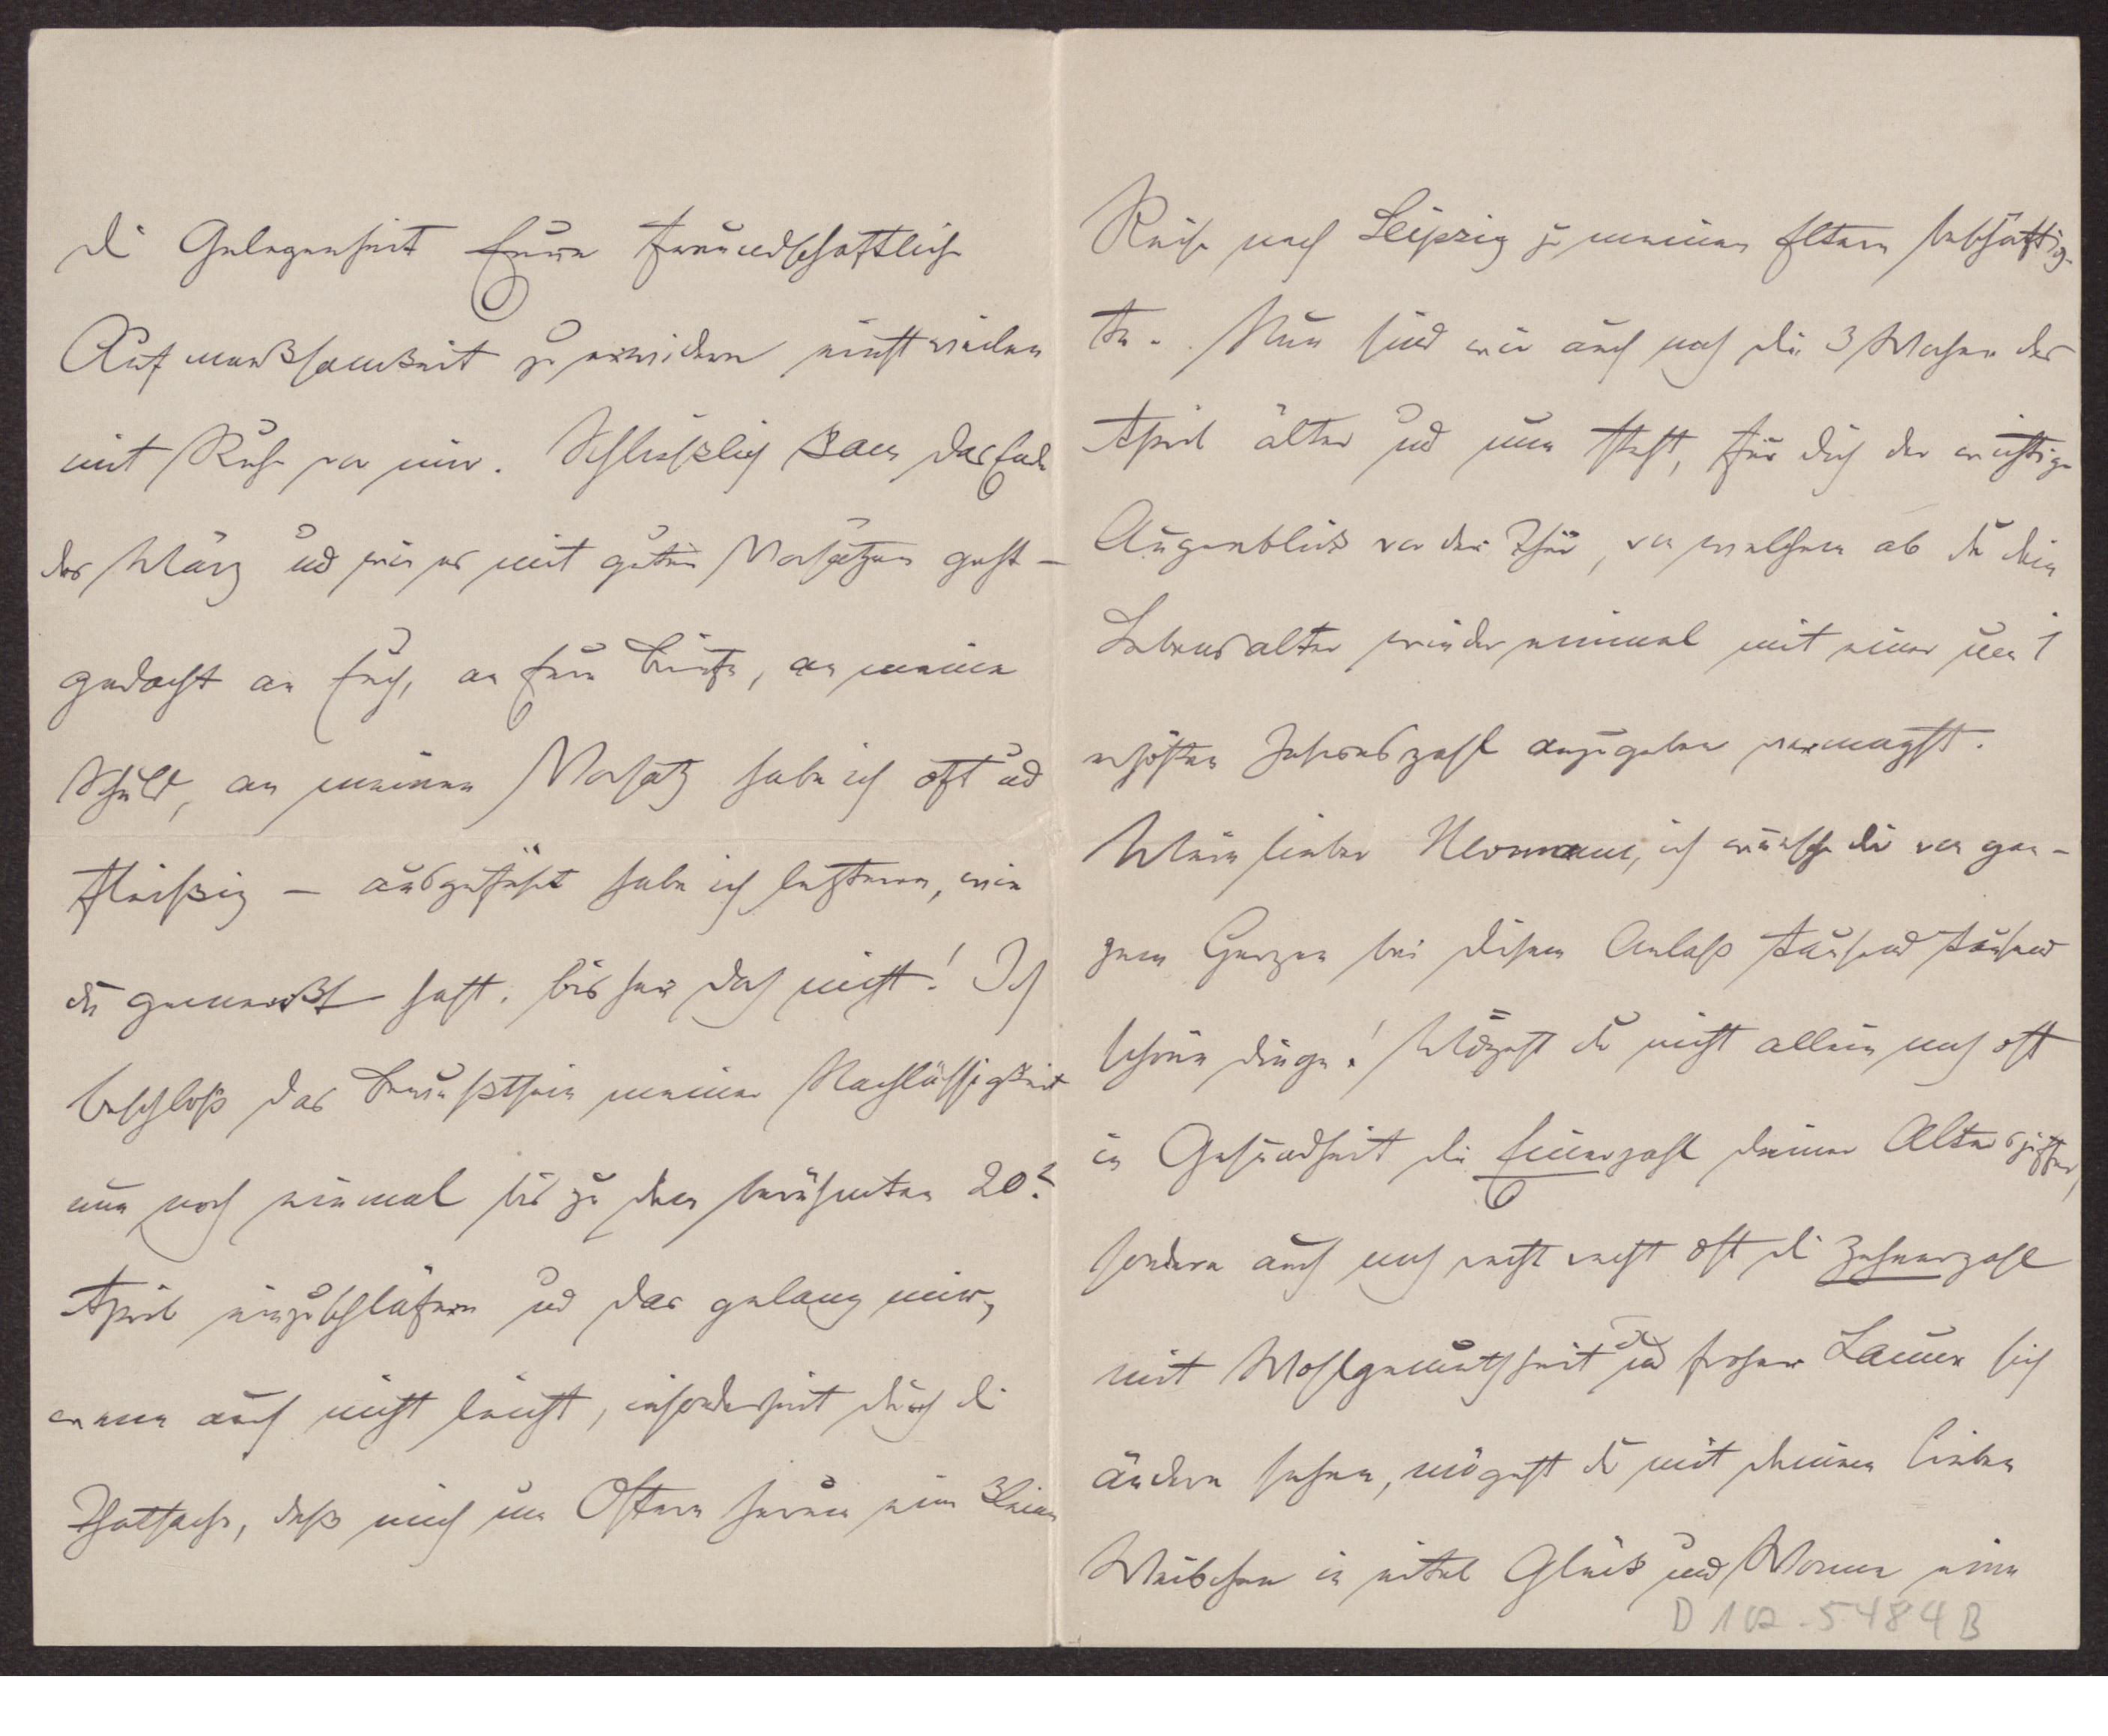 die Gelegenheit Eure freundschaftliche
Aufmerksamkeit zu erwidern einstweilen
mit Ruhe vor mir. Schließlich kam das Ende
des März und wie es mit guten Vorsätzen geht –
gedacht an Euch, an Eure Briefe, an meine
Schuld, an meinen Vorsatz habe ich oft und
fleißig – ausgeführt habe ich letzteren, wie
du gemerkt hast, bisher doch nicht! Ich
beschloß das Bewußtsein meiner Nachlässigkeit
nun noch einmal bis zu dem berühmten 20t
April einzuschläfern und das gelang mir,
wenn auch nicht leicht, insonderheit durch die
Thatsache, daß mich um Ostern herum eine kleine
Reise nach Leipzig zu meinen Eltern beschäftig-
te. Nun sind wir auch noch die 3 Wochen des
April älter und nun steht, für dich der wichtige
Augenblick vor der Thür, von welchem ab du dein
Lebensalter wieder einmal mit einer um 1
erhöhten Jahreszahl anzugeben vermagst.
Mein lieber Hermann, ich wünsche dir von gan-
zem Herzen bei diesem Anlaß tausend tausend
schöne Dinge! Mögest du nicht allein noch oft
in Gesundheit die Einerzahl deiner Altersziffer,
sondern auch noch recht recht oft die Zehnerzahl
mit Wohlgemuthheit und froher Laune sich
ändern sehen, mögest du mit deinem lieben
Weibchen in eitel Glück und Wonne eine
D 102-5484 B